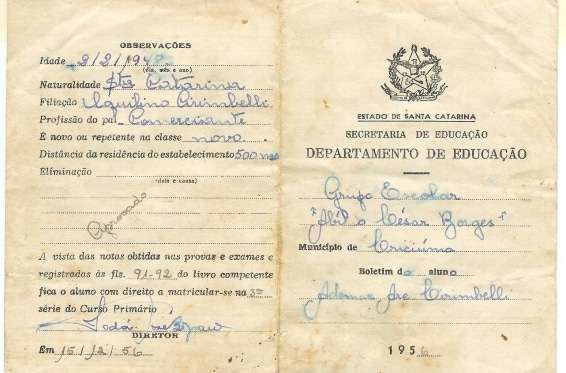 OBSERVAÇÕES
Idade 2/2/1948
(dia, mês e ano)
Naturalidade Sta Catarina
Filiação Aquilino Cirimbelli
Profissão do pai Comerciante
É novo ou repetente na classe novo.
Distância da residência do estabelecimento 500 ms
Eliminação
(data e causa)
Aprovado
A vista das notas obtidas nas provas e exames e
registradas às fls. 91-92 do livro competente
fica o aluno com direito a matricular-se na 3ª
série do Curso Primário.
DIRETOR
Em 15/12/56
ESTADO DE SANTA CATARINA
SECRETARIA DE EDUCAÇÃO
DEPARTAMENTO DE EDUCAÇÃO
Grupo Escolar
"Abílio César Borges"
Município de Criciúma
Boletim do aluno
Ademar Cirimbelli
1956